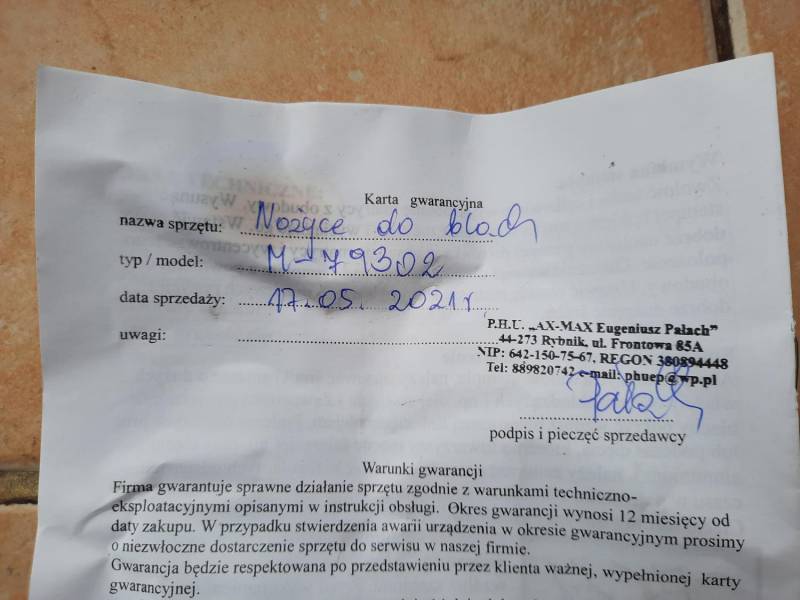 Karta gwarancyjna
nazwa sprzętu: Nożyce do blach
typ / model: M-79302
data sprzedaży: 17.05. 2021r
uwagi:
P.H.U. „AX-MAX Eugeniusz Pałach”
44-273 Rybnik, ul. Frontowa 85A
NIP: 642-150-75-67, REGON 380894448
Tel: 889820742 e-mail: phuep@wp.pl
podpis i pieczęć sprzedawcy
Warunki gwarancji
Firma gwarantuje sprawne działanie sprzętu zgodnie z warunkami techniczno-
eksploatacyjnymi opisanymi w instrukcji obsługi. Okres gwarancji wynosi 12 miesięcy od
daty zakupu. W przypadku stwierdzenia awarii urządzenia w okresie gwarancyjnym prosimy
o niezwłoczne dostarczenie sprzętu do serwisu w naszej firmie.
Gwarancja będzie respektowana po przedstawieniu przez klienta ważnej, wypełnionej karty
gwarancyjnej.